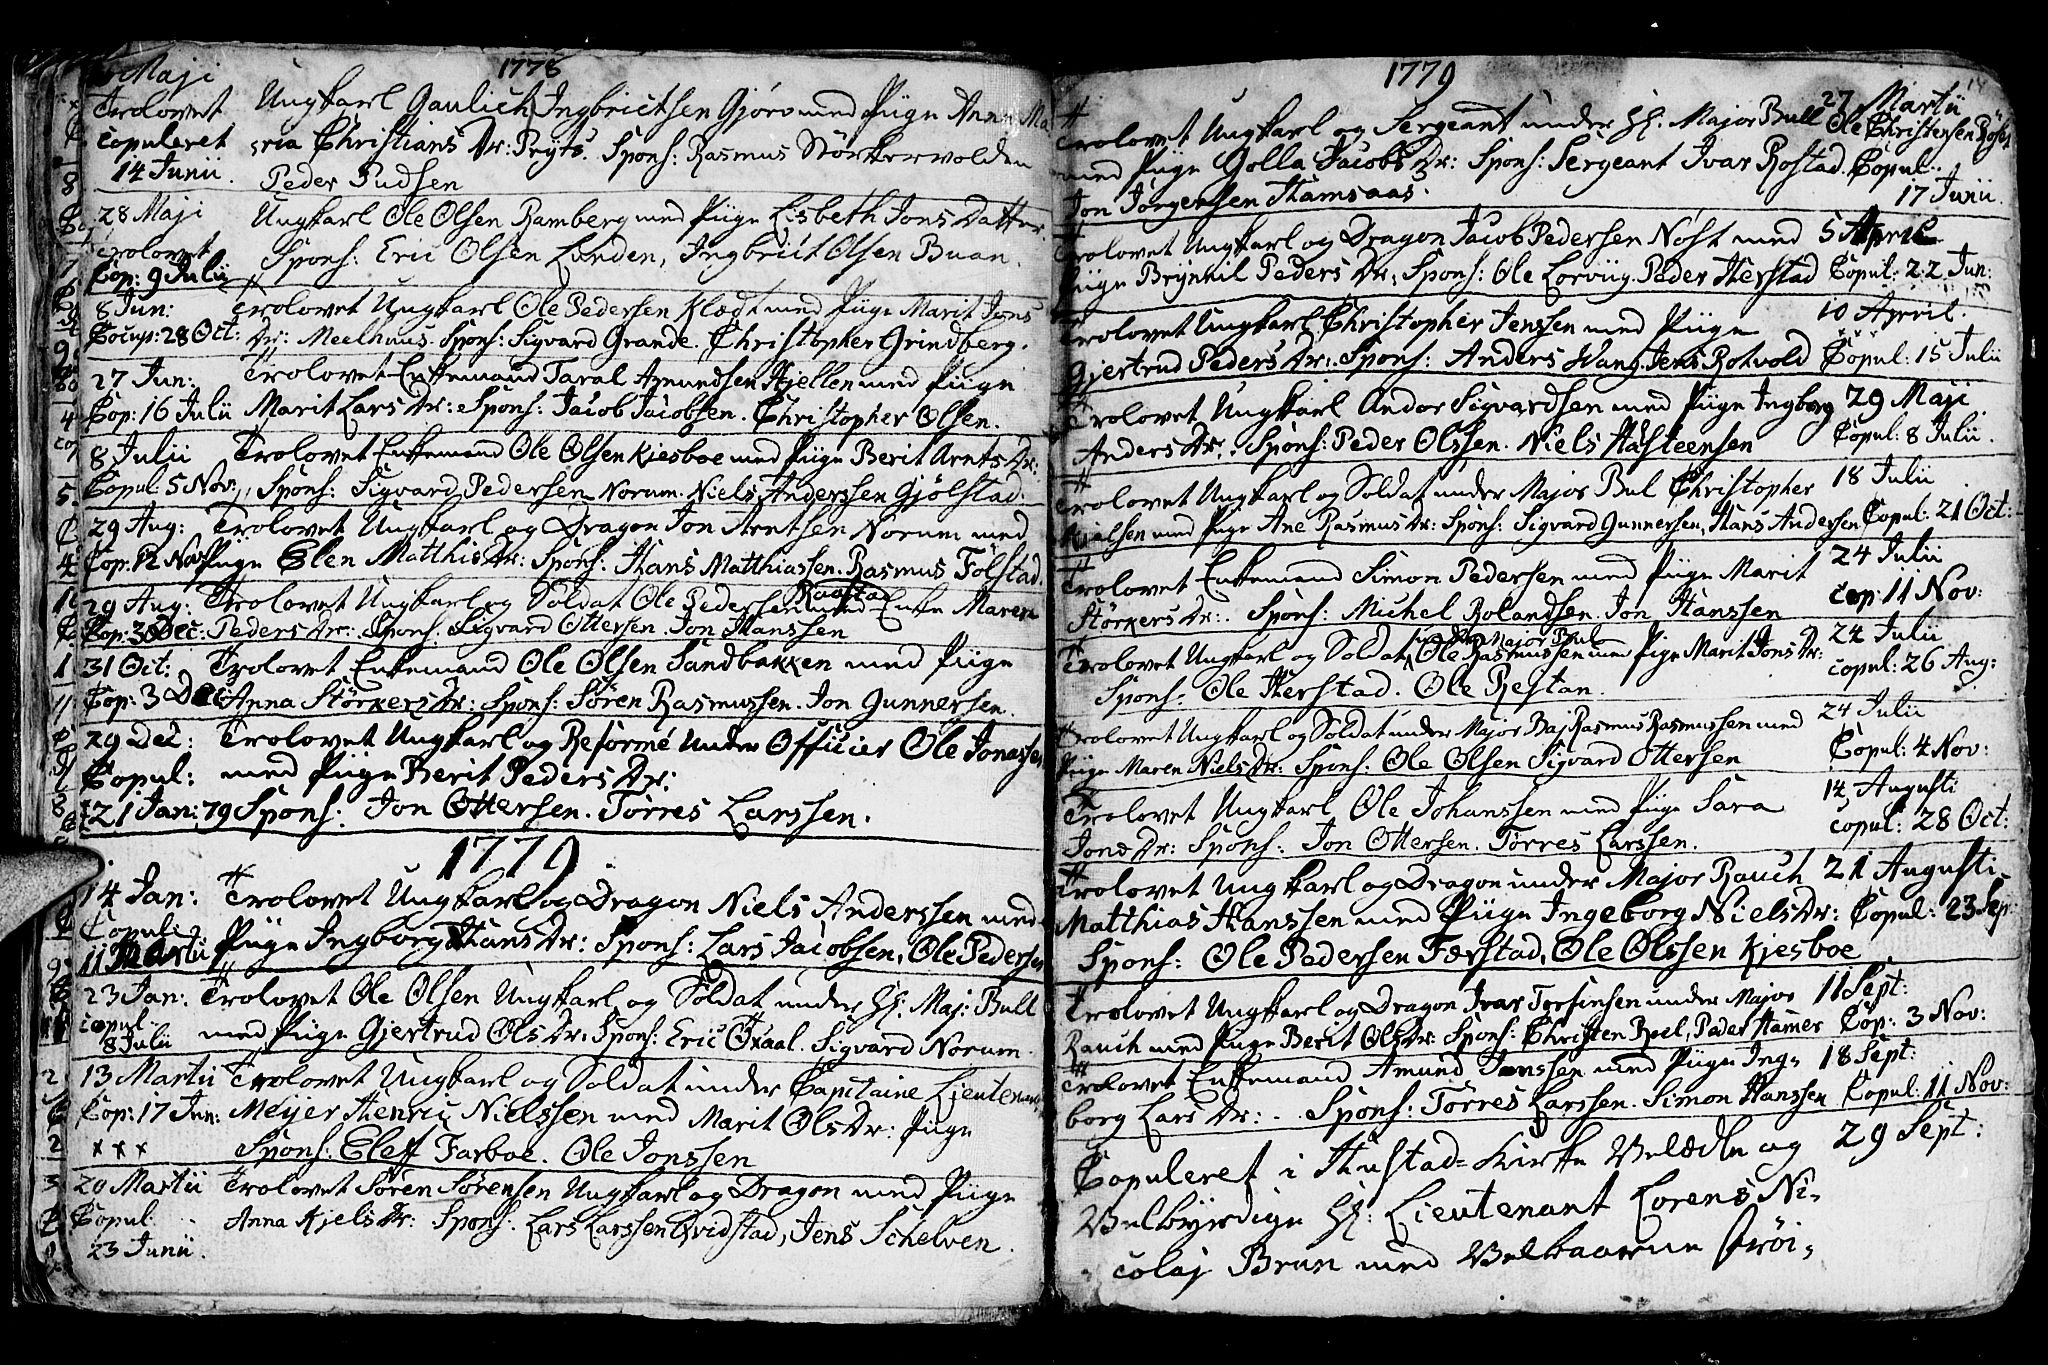 1778
Maji
Trolovet Ungkarl Gaulich Ingbrictsen Gjörv med Piige Anna Ma
copuleret ria Christians Dr: Pryts. Spons: Rasmus Störkervolden
14 Junii. Peder Pudsen
28 Maji Ungkarl Ole Olsen Ramberg med Piige Lisbeth Jons Datter.
Trolovet Spons: Eric Olsen Lunden, Ingbrict Olsen Buan.
Cop: 9 Julii
8 Jun: Trolovet Ungkarl Ole Pedersen Klædt med Piige Marit Jons
28 Oct: Dr: Meelhuus. Spons: Sigvard Grande. Christopher Grindberg.
27 Jun: Trolovet Enkemand Taral Amundsen Hjellen med Piige
Cop: 16 Julii Marit Lars Dr: Spons: Jacob Jacobsen. Christopher Olsen.
8 Julii Trolovet Enkemand Ole Olsen Kjesboe med Piige Berit Arnts Dr:
Copul: 5 Nov: Spons: Sigvard Pedersen Norum. Niels Anderssen Gjölstad.
29 Aug: Trolovet Ungkarl og Dragon Jon Arntsen Norum med
Cop: 12 Nov Piige Elen Matthis Dr: Spons: Hans Matthiassen. Rasmus Folstad.
29 Aug: Trolovet Ungkarl og Soldat Ole Pedersen med Enke Maren
Cop: 3 Dec: Peders Dr: Spons. Sigvard Ottersen. Jon Hanssen
31 Oct: Trolovet Enkemand Ole Olsen Sandbakken med Piige
Cop: 3 Dec Anna Störkers Dr: Spons: Sören Rasmussen. Jon Gunnersen.
29 Dec: Trolovet Ungkarl og Reformé Under Officier Ole Jonassen
Copul: med Piige Berit Peders Dr:
21 Jan: 79 Spons: Jon Ottersen. Törres Larssen.
1779
14 Jan: Trolovet Ungkarl og Dragon Niels Anderssen med
Copul:
11 Martii Piige Ingborg Hans Dr: Spons: Lars Jacobsen, Ole Pedersen
23 Jan: Trolovet Ole Olsen Ungkarl og Soldat under Hr: Maj: Bull
copul
8 Julii med Piige Gjertrud Ols Dr: Spons: Eric Oxaal. Sigvard Norum.
13 Martii Trolovet Ungkarl og Soldat under Capitaine Lieutenant
Cop: 17 Jun: Meijer Henric Nielssen med Marit Ols Dr: Piige
x x x Spons: Eleff Farboe. Ole Jonssen
20 Martii Trolovet Sören Sörensen Ungkarl og Dragon med Piige
Copul: Anna Kjels Dr: Spons. Lars Larssen Qvidstad, Jens Schelven.
23 Junii.
1779
Trolovet Ungkarl og Sergeant under Hr: Major Bull Ole Christensen 27 Martii
med Piige Golla Jacobs Dr: Spons: Sergeant Ivar Rostad. Copul:
Jon Jörgensen Hamsaas. 17 Junii.
Trolovet Ungkarl og Dragon Jacob Pedersen Nöst med 5 April
Piige Brynnil Peders Dr: Spons: Ole Lorviig. Peder Herstad Copul: 22 Jun:
Trolovet Ungkarl Christopher Jenssen med Piige 10 April.
Gjertrud Peders Dr: Spons: Anders Wang. Jens Rotvold Copul: 15 Julii
Trolovet Ungkarl Andor Sigvardsen med Piige Ingborg 29 Maji
Anders Dr: Spons: Peder Olssen. Niels Hasteensen Copul: 8 Julii.
Trolovet Ungkarl og Soldat under Major Bul Christopher 18 Julii
Nielsen med Piige Ane Rasmus Dr: Spons: Sigvard Gunnersen, Hans Andersen Copul: 21 Oct:
Trolovet Enkemand Simon Pedersen med Piige Marit 24 Julii
Störkers Dr: Spons: Michel Rolandsen. Jon Hanssen cop: 11 Nov:
under Major Bul
Trolovet Ungkarl og Soldat Ole Rasmussen med Pige Marit Jons Dr: 24 Julii
Spons: Ole Herstad. Ole Restan. copul: 26 Aug:
Trolovet Ungkarl og Soldat under Major Baj Rasmus Rasmussen med 24 Julii
Piige Maren Niels Dr: Spons: Ole Olsen Sigvard Ottersen Copul: 4 Nov:
Trolovet Ungkarl Ole Johanssen med Piige Sara 14 Augusti
Jons Dr: Spons: Jon Ottersen. Törres Larssen. copul: 28 Oct:
Trolovet Ungkarl og Dragon under Major Rauch 21 Augusti
Matthias Hanssen med Piige Ingeborg Niels Dr: Copul: 23 Sep:
Spons: Ole Pedersen Færstad, Ole Olssen Kjesboe
Trolovet Ungkarl og Dragon Ivar Torsinsen under Major 11 Sept:
Rauch med Piige Berit Ols Dr: Spons: Christen Roel, Peder Hamer Cop: 3 Nov:
Trolovet Enkemand Amund Jonssen med Piige Ing- 18 Sept:
borg Lars Dr: Spons: Törres Larssen. Simon Hanssen Copul: 11 Nov:
Copuleret i Hustad-Kirke Velædle og 29 Sept:
Velbyrdige Hr: Lieutenant Lorens Ni-
colaj Brun med Velbaarne Fröi-